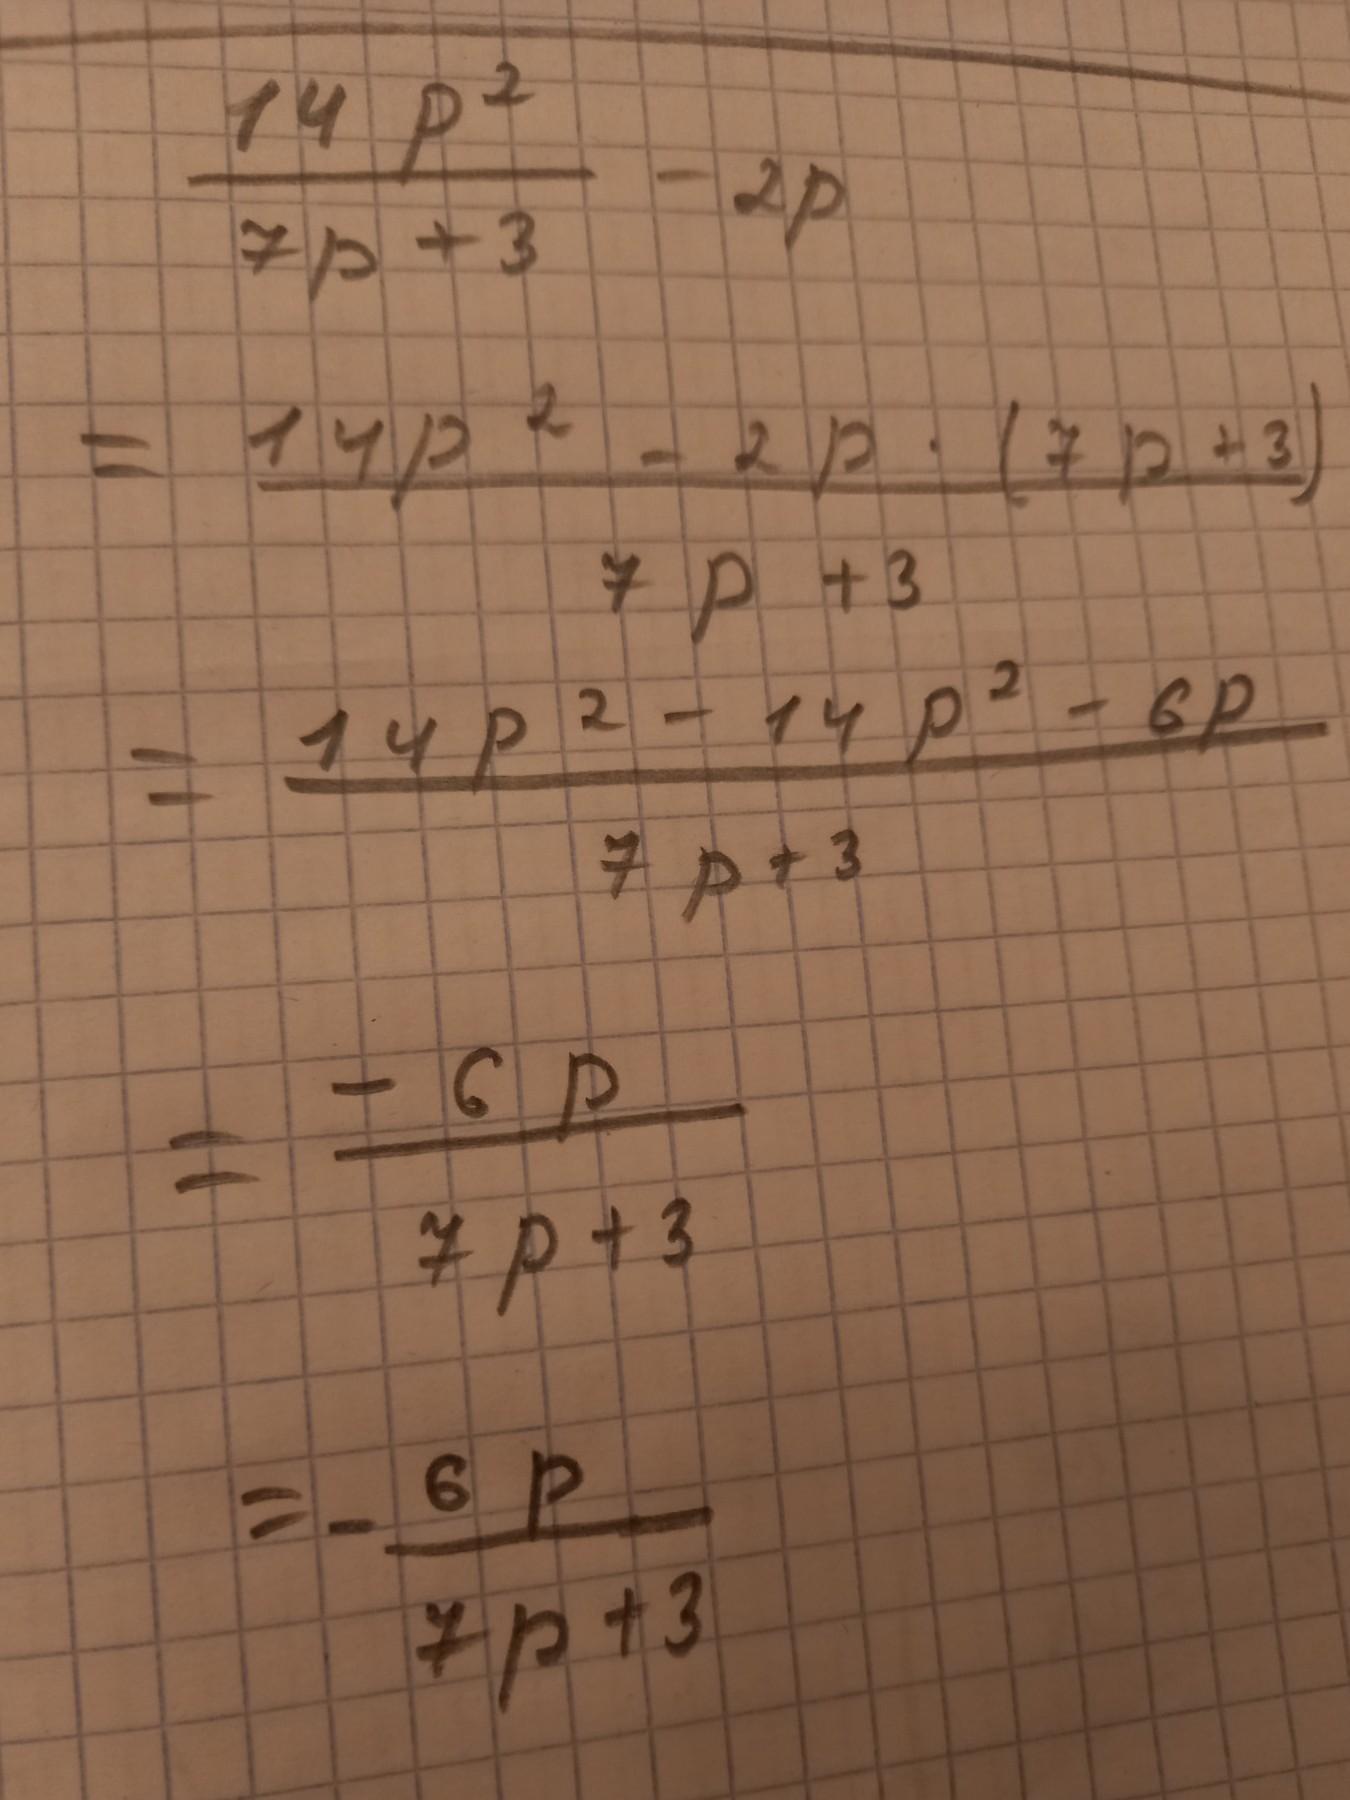 14 p²
7p + 3
- 2p
= 14p² - 2p · (7p + 3)
7 p + 3
= 14p² - 14p² - 6p
7 p + 3
= - 6 p
7 p + 3
= - 6 p
7 p + 3